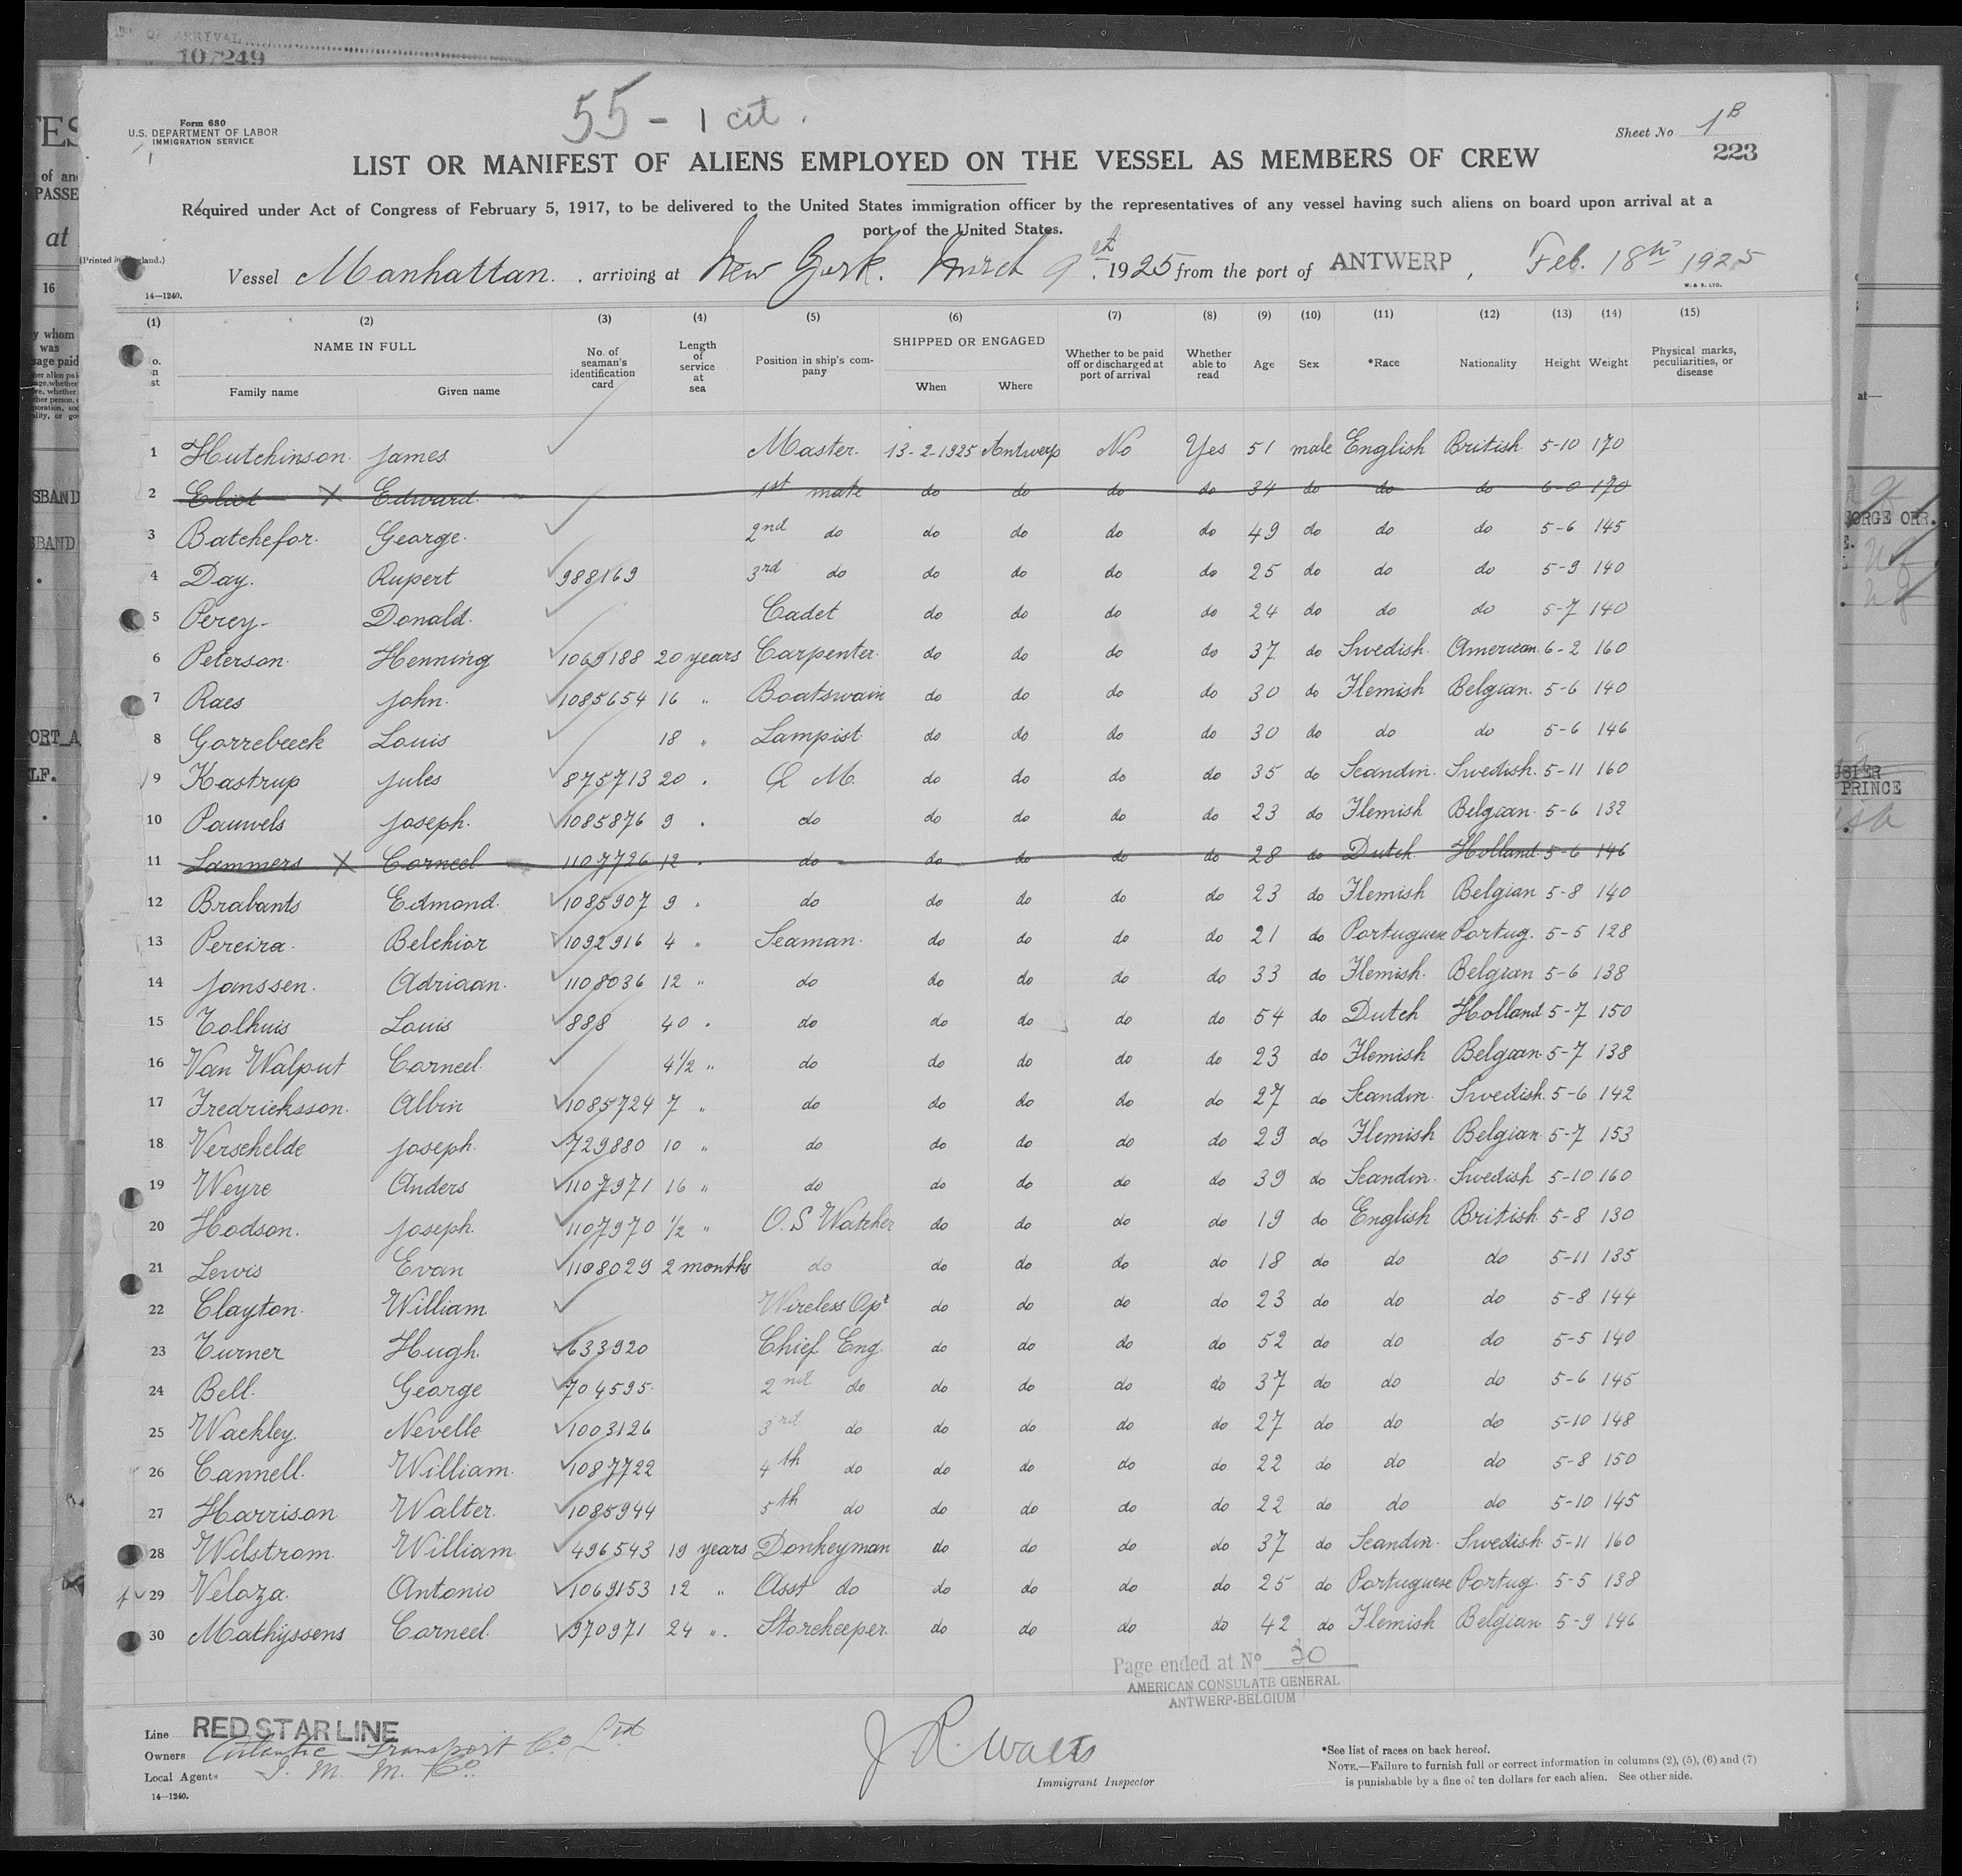 107249
55 - 1 cit.
Form 680
U.S. DEPARTMENT OF LABOR
IMMIGRATION SERVICE
Sheet No 1B
223
LIST OR MANIFEST OF ALIENS EMPLOYED ON THE VESSEL AS MEMBERS OF CREW
Required under Act of Congress of February 5, 1917, to be delivered to the United States immigration officer by the representatives of any vessel having such aliens on board upon arrival at a
port of the United States.
Vessel Manhattan. arriving at New York. March 9th. 1925 from the port of ANTWERP, Feb. 18th 1925
14—1240.
W. & S. LTD.
(1) (2) (3) (4) (5) (6) (7) (8) (9) (10) (11) (12) (13) (14) (15)
NAME IN FULL Family name Given name No. of seaman's identification card Length of service at sea Position in ship's company SHIPPED OR ENGAGED When Where Whether to be paid off or discharged at port of arrival Whether able to read Age Sex *Race Nationality Height Weight Physical marks, peculiarities, or disease
1 Hutchinson. James Master. 13-2-1925 Antwerp No Yes 51 male English British 5-10 170
2 Eliot X Edward. 1st mate do do do do 34 do do do 6-0 170
3 Batchefor. George. 2nd do do do do do 49 do do do 5-6 145
4 Day. Rupert 988169 3rd do do do do do 25 do do do 5-9 140
5 Percy- Donald. Cadet do do do do 24 do do do 5-7 140
6 Peterson. Henning 1069188 20 years Carpenter. do do do do 37 do Swedish. American. 6-2 160
7 Raes John. 1085654 16 " Boatswain do do do do 30 do Flemish Belgian. 5-6 140
8 Gorrebeeck Louis 18 " Lampist do do do do 30 do do do 5-6 146
9 Kastrup Jules 875713 20 . Q M. do do do do 35 do Scandin. Swedish. 5-11 160
10 Pauwels Joseph. 1085876 9 . do do do do do 23 do Flemish Belgian. 5-6 132
11 Lammers X Corneel 1107726 12 . do do do do do 28 do Dutch Holland 5-6 146
12 Brabants Edmond. 1085907 9 . do do do do do 23 do Flemish Belgian 5-8 140
13 Pereira. Belchior 1092916 4 " Seaman. do do do do 21 do Portuguese Portug. 5-5 128
14 Janssen. Adriaan. 1108036 12 " do do do do do 33 do Flemish. Belgian 5-6 138
15 Tolhuis Louis 888 40 . do do do do do 54 do Dutch Holland 5-7 150
16 Van Walput Corneel. 4½ " do do do do do 23 do Flemish Belgian. 5-7 138
17 Fredricksson. Albin 1085724 7 " do do do do do 27 do Scandin. Swedish. 5-6 142
18 Verschelde Joseph. 729880 10 " do do do do do 29 do Flemish Belgian. 5-7 153
19 Weyre Anders 1107971 16 " do do do do do 39 do Scandin. Swedish 5-10 160
20 Hodson. Joseph. 1107970 ½ " O.S Watcher do do do do 19 do English British 5-8 130
21 Lewis Evan 1108029 2 months do do do do do 18 do do do 5-11 135
22 Clayton. William Wireless Opr do do do do 23 do do do 5-8 144
23 Turner Hugh. 633920 Chief Eng. do do do do 52 do do do 5-5 140
24 Bell. George 704595. 2nd do do do do do 37 do do do 5-6 145
25 Wackley. Nevelle 1003126 3rd do do do do do 27 do do do 5-10 148
26 Cannell. William. 1087722 4th do do do do do 22 do do do 5-8 150
27 Harrison Walter. 1085944 5th do do do do do 22 do do do 5-10 145
28 Wilstrom. William. 496543 19 years Donkeyman do do do do 37 do Scandin. Swedish. 5-11 160
29 Veloza. Antonio 1069153 12 " Asst do do do do do 25 do Portuguese Portug. 5-5 138
30 Mathyssens Corneel. 970971 24 " Storekeeper. do do do do 42 do Flemish Belgian 5-9 146
Page ended at No 30
AMERICAN CONSULATE GENERAL
ANTWERP-BELGIUM
Line RED STAR LINE
Owners Atlantic Transport Co Ltd
Local Agents I. M. M. Co.
14—1240.
J R. Watts
Immigrant Inspector
*See list of races on back hereof.
NOTE.—Failure to furnish full or correct information in columns (2), (5), (6) and (7)
is punishable by a fine of ten dollars for each alien. See other side.